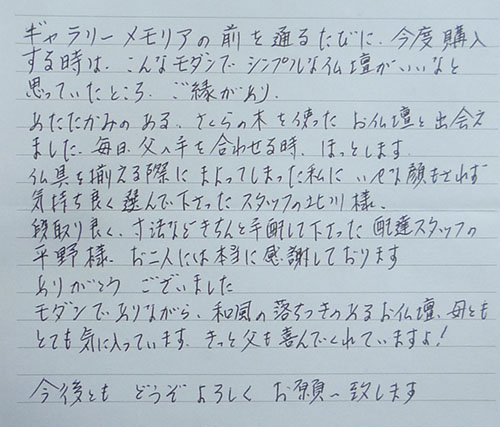 ギャラリーメモリアの前を通るたびに、今度購入
する時は、こんなモダンで シンプルな仏壇がいいなと
思っていたところ、ご縁があり、
あたたかみのある、さくらの木を使った お仏壇と出会え
ました。毎日、父へ手を合わせる時、ほっとします。
仏具を揃える際に まよってしまった私に いやな顔もされず
気持ち良く選んで下さった スタッフの北川様、
段取り良く、寸法などきちんと手配して下さった 配達スタッフの
平野様、お二人には本当に感謝しております
ありがとう ございました
モダンでありながら、和風の落ちつきのあるお仏壇、母とも
とても気に入っています。きっと父も喜んでくれていますよ!
今後とも どうぞ よろしく お願い致します